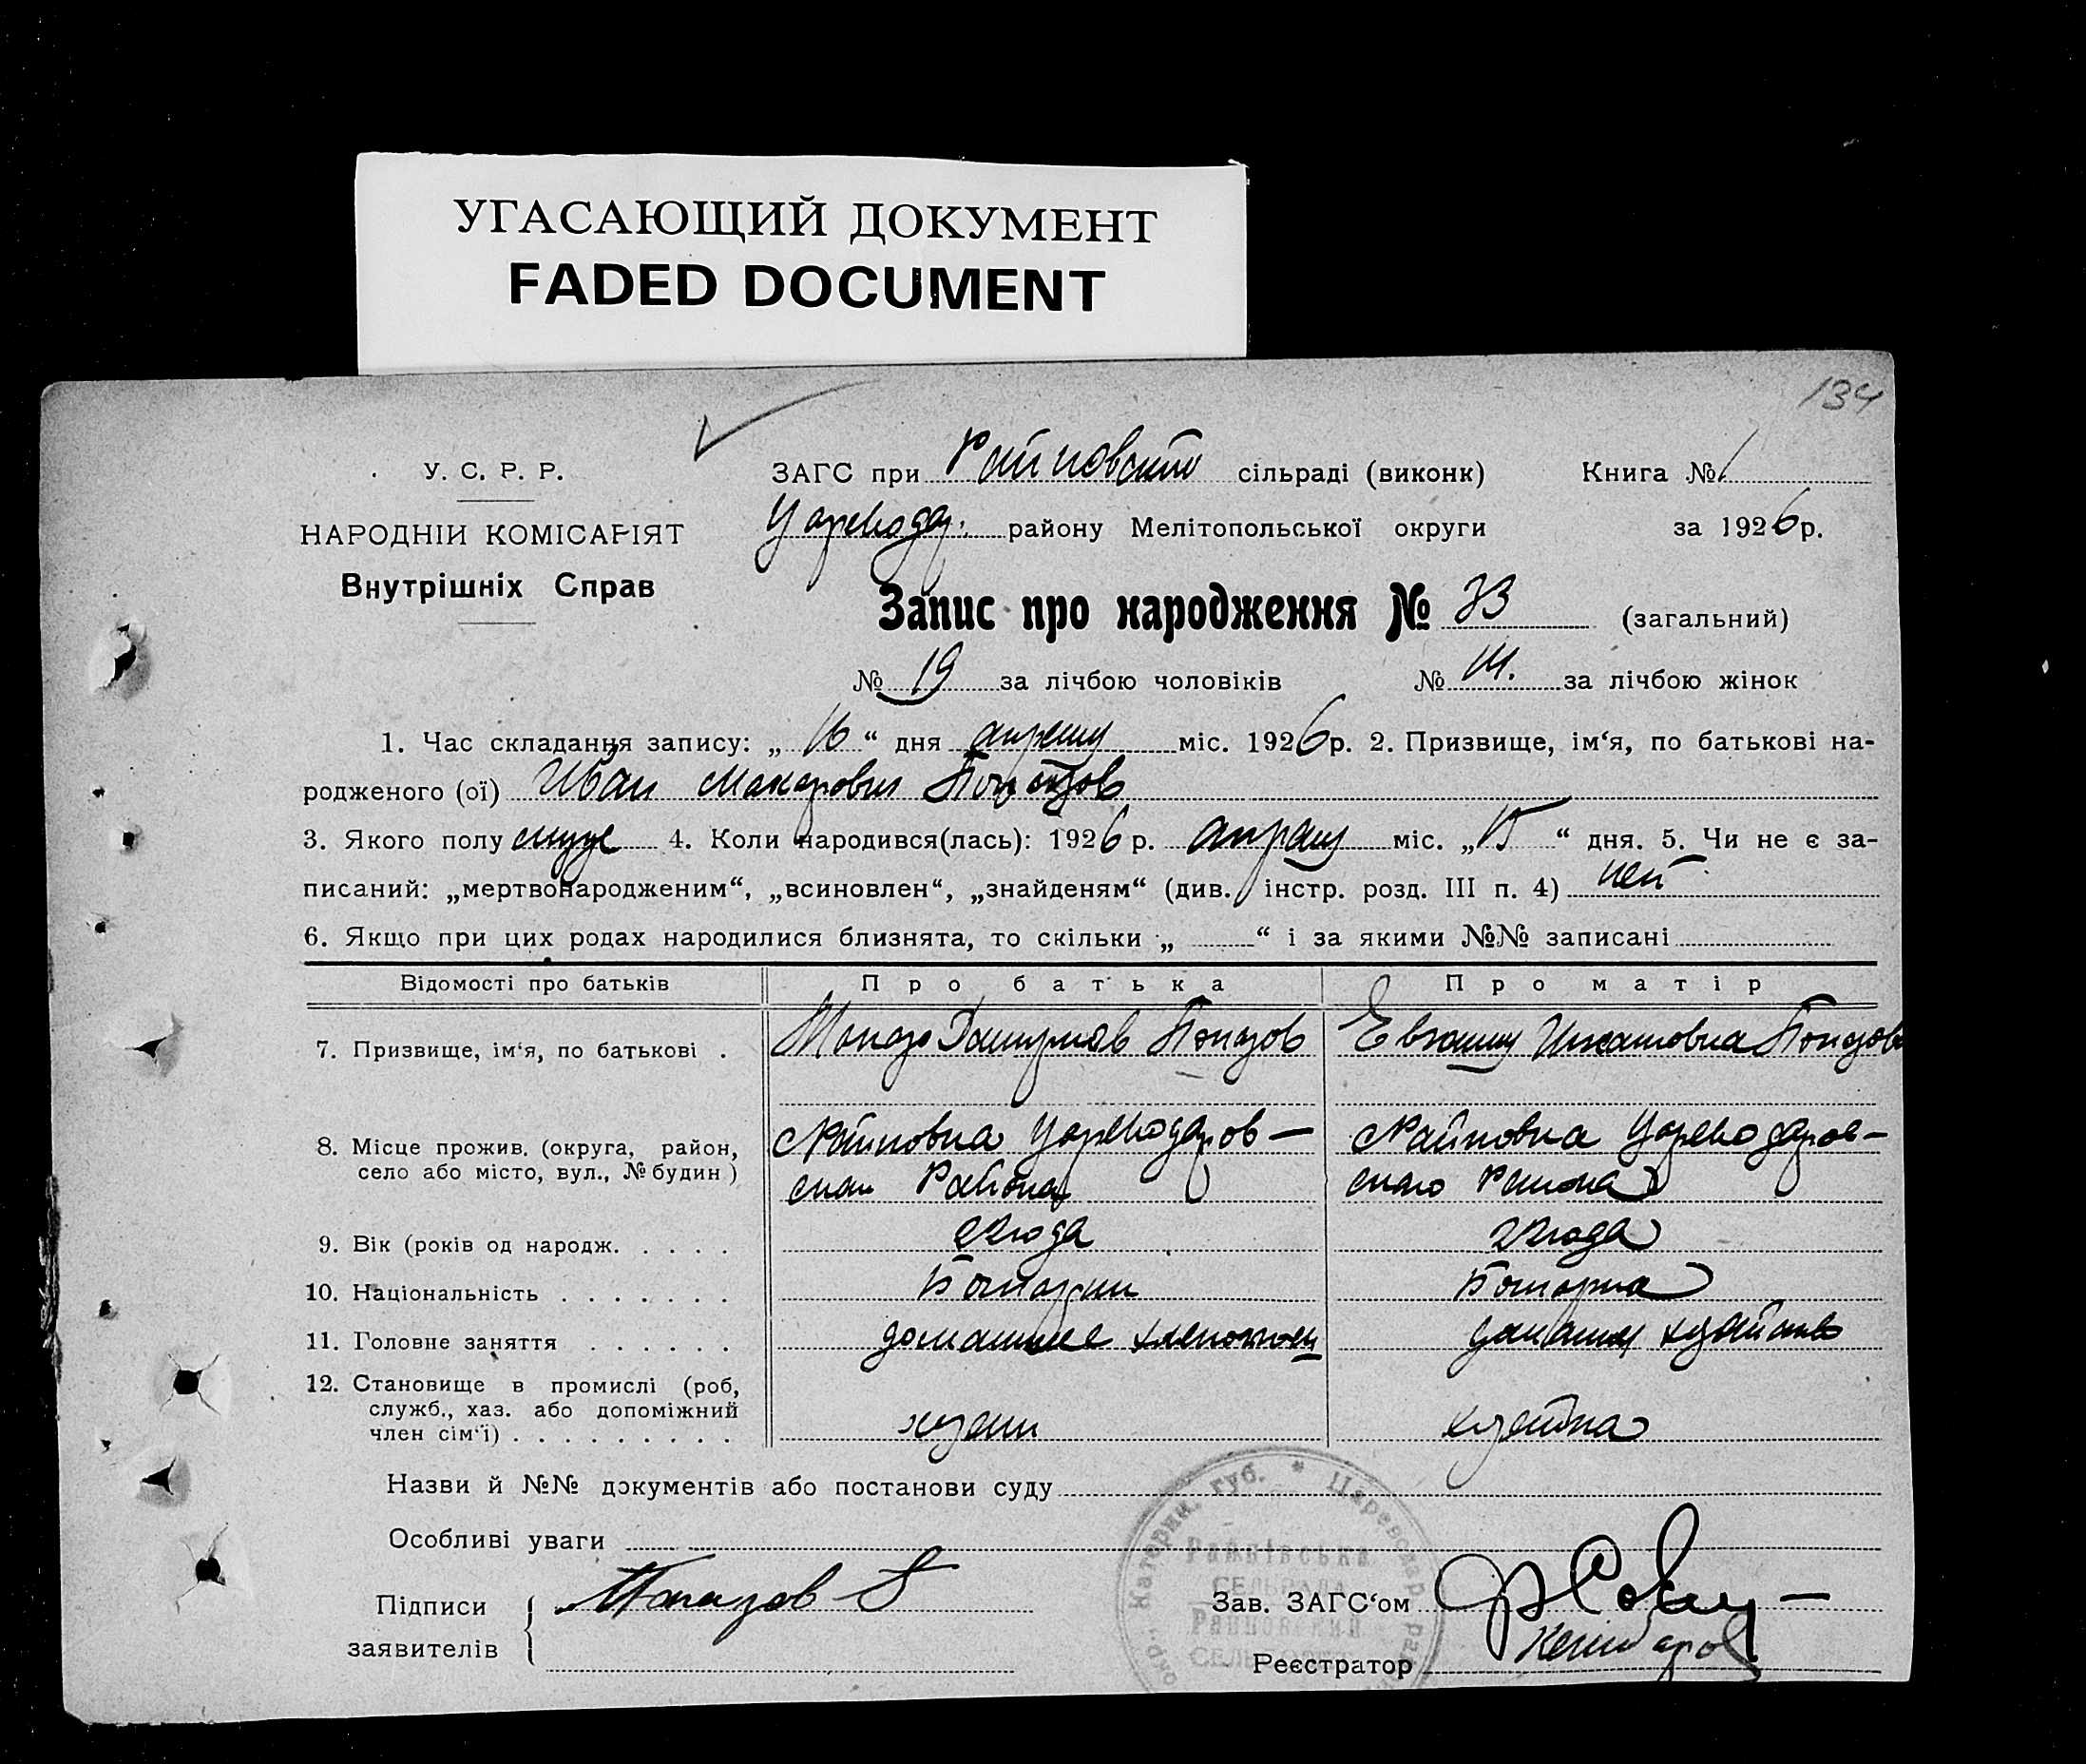 УГАСАЮЩИЙ ДОКУМЕНТ
FADED DOCUMENT
134
У. С. Р. Р.
НАРОДНІЙ КОМІСАРІЯТ
Внутрішніх Справ
ЗАГС при сільраді (виконк) Книга № 1
Цареводар. району Мелітопольської округи за 1926 р.
Запис про народження № 33 (загальний)
№ 19 за лічбою чоловіків № 14. за лічбою жінок
1. Час складання запису: „ 16 “ дня апреля міс. 1926 р. 2. Призвище, ім‘я, по батькові на-
родженого (ої) Иван Макарович
3. Якого полу муж 4. Коли народився(лась): 1926 р. апреля міс. „ 15 “ дня. 5. Чи не є за-
писаний: „мертвонародженим“, „всиновлен“, „знайденям“ (див. інстр. розд. III п. 4) нет
6. Якщо при цих родах народилися близнята, то скільки „ “ і за якими №№ записані
Відомості про батьків Про батька Про матір
7. Призвище, ім‘я, по батькові .
8. Місце прожив. (округа, район,
село або місто, вул., № будин)
Райновка Цареводаров—
Района
Райновка Цареводаров—
скаго Района
9. Вік (років од народж. . . . . 22 года 22 года
10. Національність . . . . . . . Болгарин Болгарка
11. Головне заняття . . . . . . домашнее
12. Становище в промислі (роб,
служб., хаз. або допоміжний
член сім‘ї) . . . . . . . . . хозяин хозяйка
Назви й №№ документів або постанови суду
Особливі уваги
Підписи
заявителів
Зав. ЗАГС‘ом
Реєстратор
Катерин. губ. * Цареводар. рай
Райнівська
СЕЛЬРАДА
Райновский